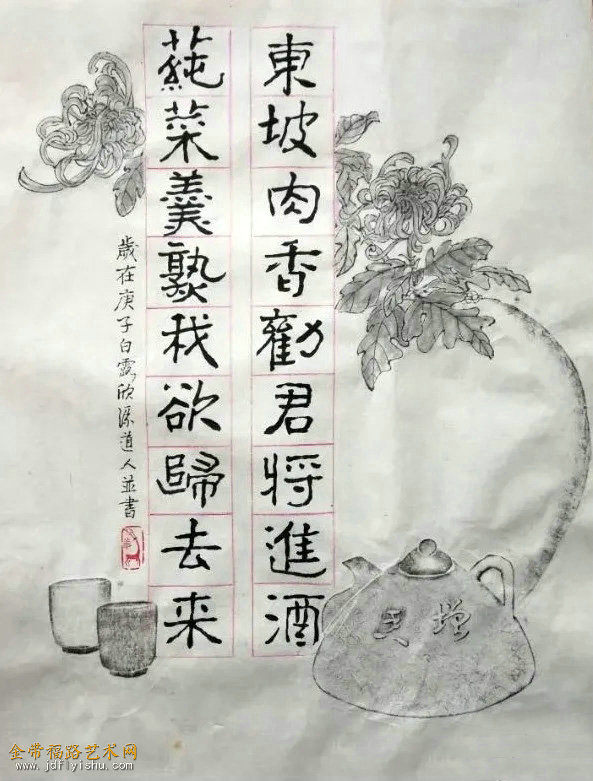 東坡肉香勸君将進酒
蒓菜羹熟我欲歸去来
歲在庚子白露欣道人並書
金带福路艺术网
www.jdflyishu.com